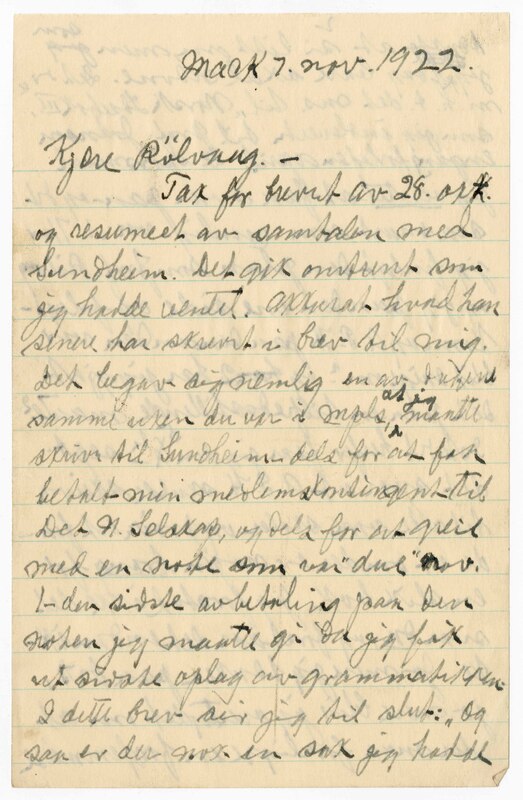 Mack 7. nov. 1922.
Kjære Rölvaag. —
Tak for brevet av 28. okt.
og resumeet av samtalen med
Sundheim. Det gik omtrent som
jeg hadde ventet. Akkurat hvad han
senere har skrevet i brev til mig.
Det begav sig nemlig en av dagene
samme uken du var i Mpls, at jeg maatte
skrive til Sundheim dels for at faa
betalt min medlemskontingent til
Det N. Selskap, og dels for at greie
med en note som var "due" nov.
1 – den sidste avbetaling paa den
noten jeg maatte gi da jeg fik
ut sidste oplag av grammatikken.
I dette brev sier jeg til slut: „Og
saa er der nok en sak jeg hadde